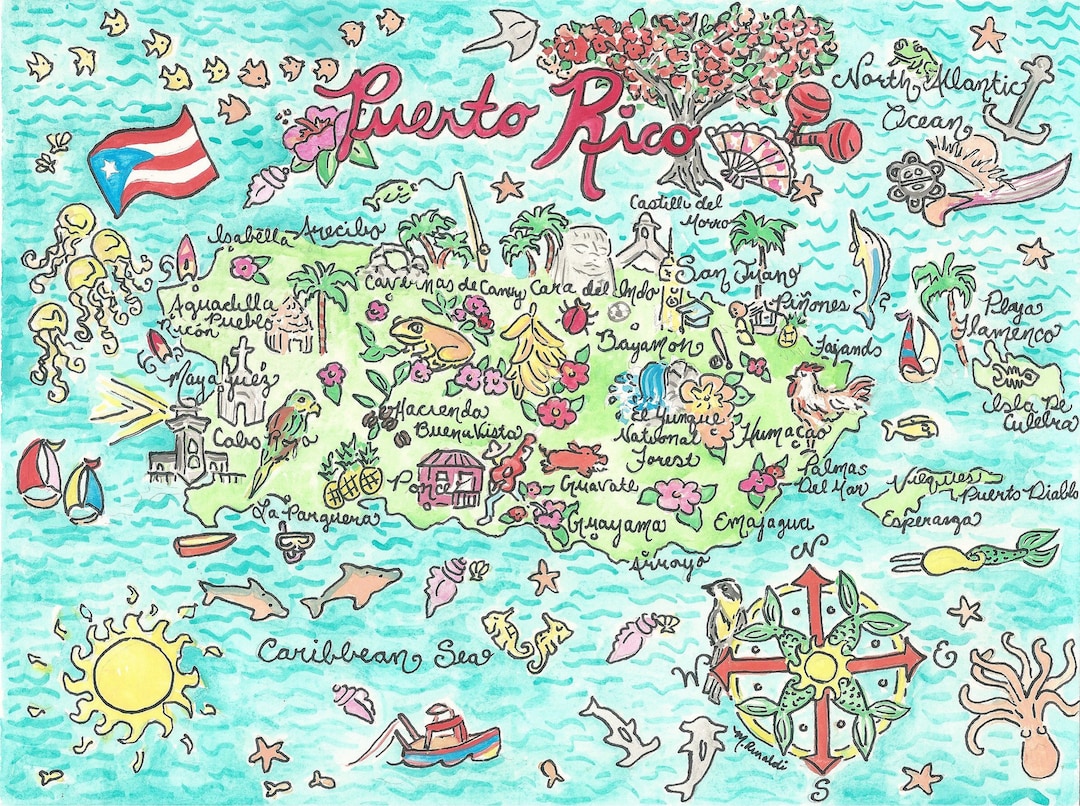 Puerto Rico
North Atlantic
Ocean
Castilli del
Morro
Isabella
Arecibo
San Juan
Cavernas de Camuy
Cara del Indo
Aquadilla
Pueblo
Ricon
Piñones
Playa
Flamenco
Bayamon
Fajando
Mayaguez
Isla De
Culebra
Hacienda
Buena Vista
El Yunque
National
Forest
Humacao
Cabo
Palmas
Del Mar
Ponce
Guavate
Vieques
Puerto Diablo
Esperanza
La Parguera
Guayama
Emajagua
Arroyo
N
Caribbean Sea
W
E
S
M. Rinaldi